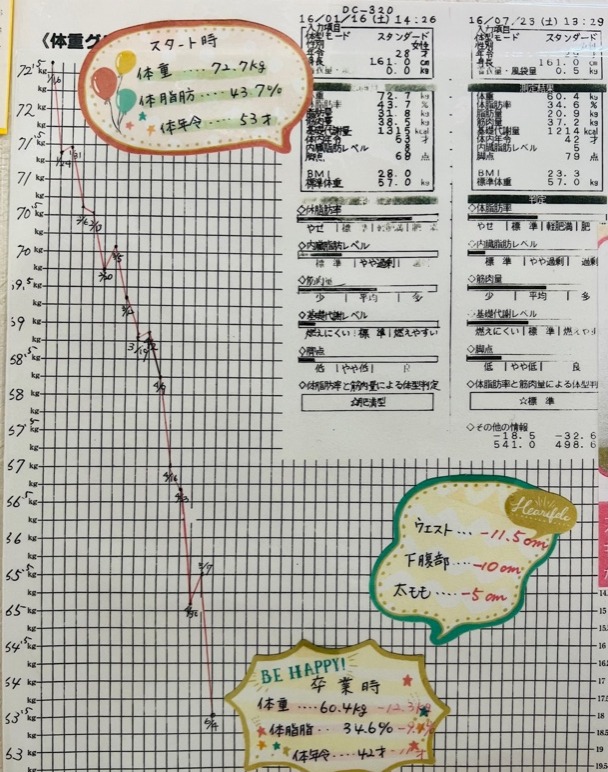 《体重グ
スタート時
体重 ‥‥ 72.7kg
体脂肪 ‥‥ 43.7%
体年令 ‥‥ 53才
DC-320
16/01/16(土)14:26
入力項目
体型モード スタンダード
性別 女性
年令 28 才
身長 161.0 cm
0.0 kg
体重 72.7 kg
体脂肪率 43.7 %
脂肪量 31.8 kg
筋肉量 38.5 kg
基礎代謝量 1315 kcal
体内年令 53 才
内臓脂肪レベル 8
脚点 68 点
BMI 28.0
標準体重 57.0 kg
◇体脂肪率
やせ | 標 準 | 軽肥満 | 肥
◇内臓脂肪レベル
標 準 | やや過剰 | 過
◇筋肉量
少 | 平均 | 多
◇基礎代謝レベル
燃えにくい | 標 準 | 燃えやすい
◇脚点
低 | やや低 | 良
◇体脂肪率と筋肉量による体型判定
☆肥満型
16/07/23(土)13:29
入力項目
体型モード スタンダード
性別
年令
身長 161.0 cm
風袋量 0.5 kg
測定結果
体重 60.4 kg
体脂肪率 34.6 %
脂肪量 20.92 kg
筋肉量 37.2 kg
基礎代謝量 1214 kcal
体内年令 42 才
内臓脂肪レベル 5
脚点 79 点
BMI 23.3
標準体重 57.0 kg
判定
◇体脂肪率
やせ | 標 準 | 軽肥満 | 肥
◇内臓脂肪レベル
標 準 | やや過剰 | 過剰
◇筋肉量
少 | 平均 | 多
◇基礎代謝レベル
燃えにくい | 標 準 | 燃えやす
◇脚点
低 | やや低 | 良
◇体脂肪率と筋肉量による体型判
☆標 準
◇その他の情報
-18.5 -32.6
541.0 498.6
72.5 kg
72 kg
71.5 kg
71 kg
70.5 kg
70 kg
69.5 kg
69 kg
68.5 kg
68 kg
67.5 kg
67 kg
66.5 kg
66 kg
65.5 kg
65 kg
64.5 kg
64 kg
63.5 kg
63 kg
1/16
1/24
1/31
2/6
2/13
2/20
3/5
3/19
4/16
5/7
6/4
Heartfelt
ウエスト‥‥ -11.5cm
下腹部‥‥ -10cm
太もも‥‥ -5cm
BE HAPPY!
卒業時
体重 ‥‥ 60.4kg -12.3kg
体脂脂‥‥ 34.6%
体年令‥‥ 42才
15
16
16.5
17
17.5
18
18.5
19
19.5